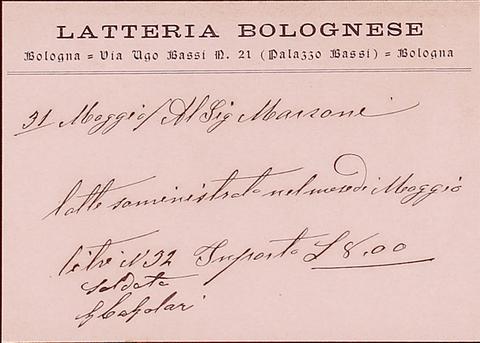 LATTERIA BOLOGNESE
Bologna = Via Ugo Bassi N. 21 (Palazzo Bassi) = Bologna
31 Maggio / Al Sig Marsoni
latte somministrato nel mese di Maggio
litri N 32 Importo £ 8.00
saldato